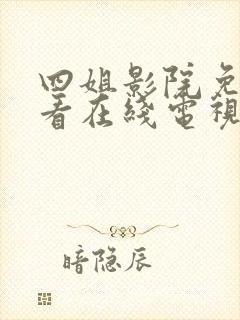 四姐影院免
看在线電視
暗隐辰